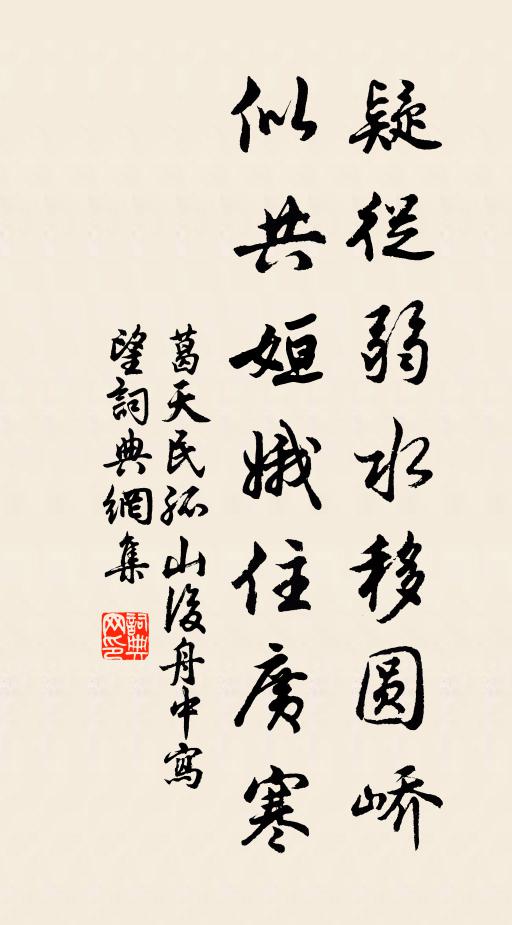 疑從弱水移圓嶠
似共姮娥住廣寒
葛天民孤山後舟中寫
望詞典網集
詞典网印